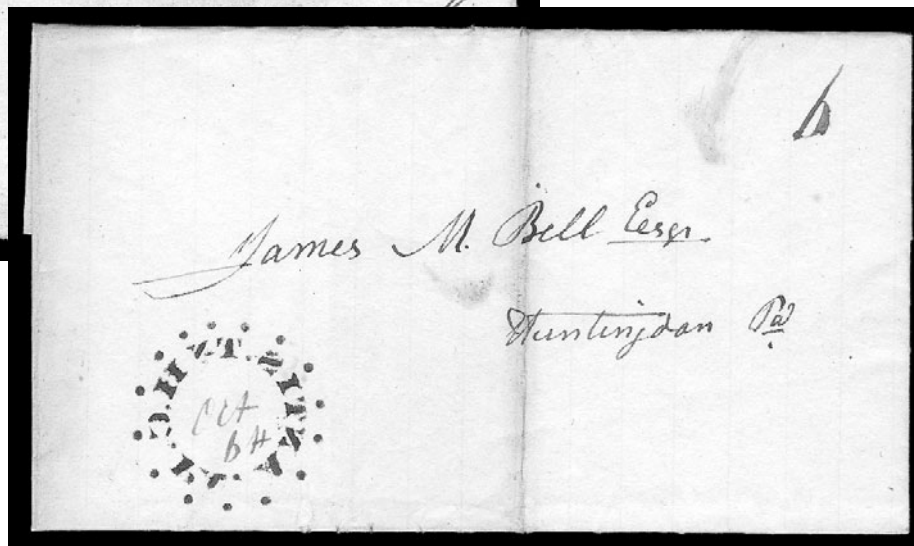 6
James M. Bell Esqr.
Huntingdon Pa
Oct